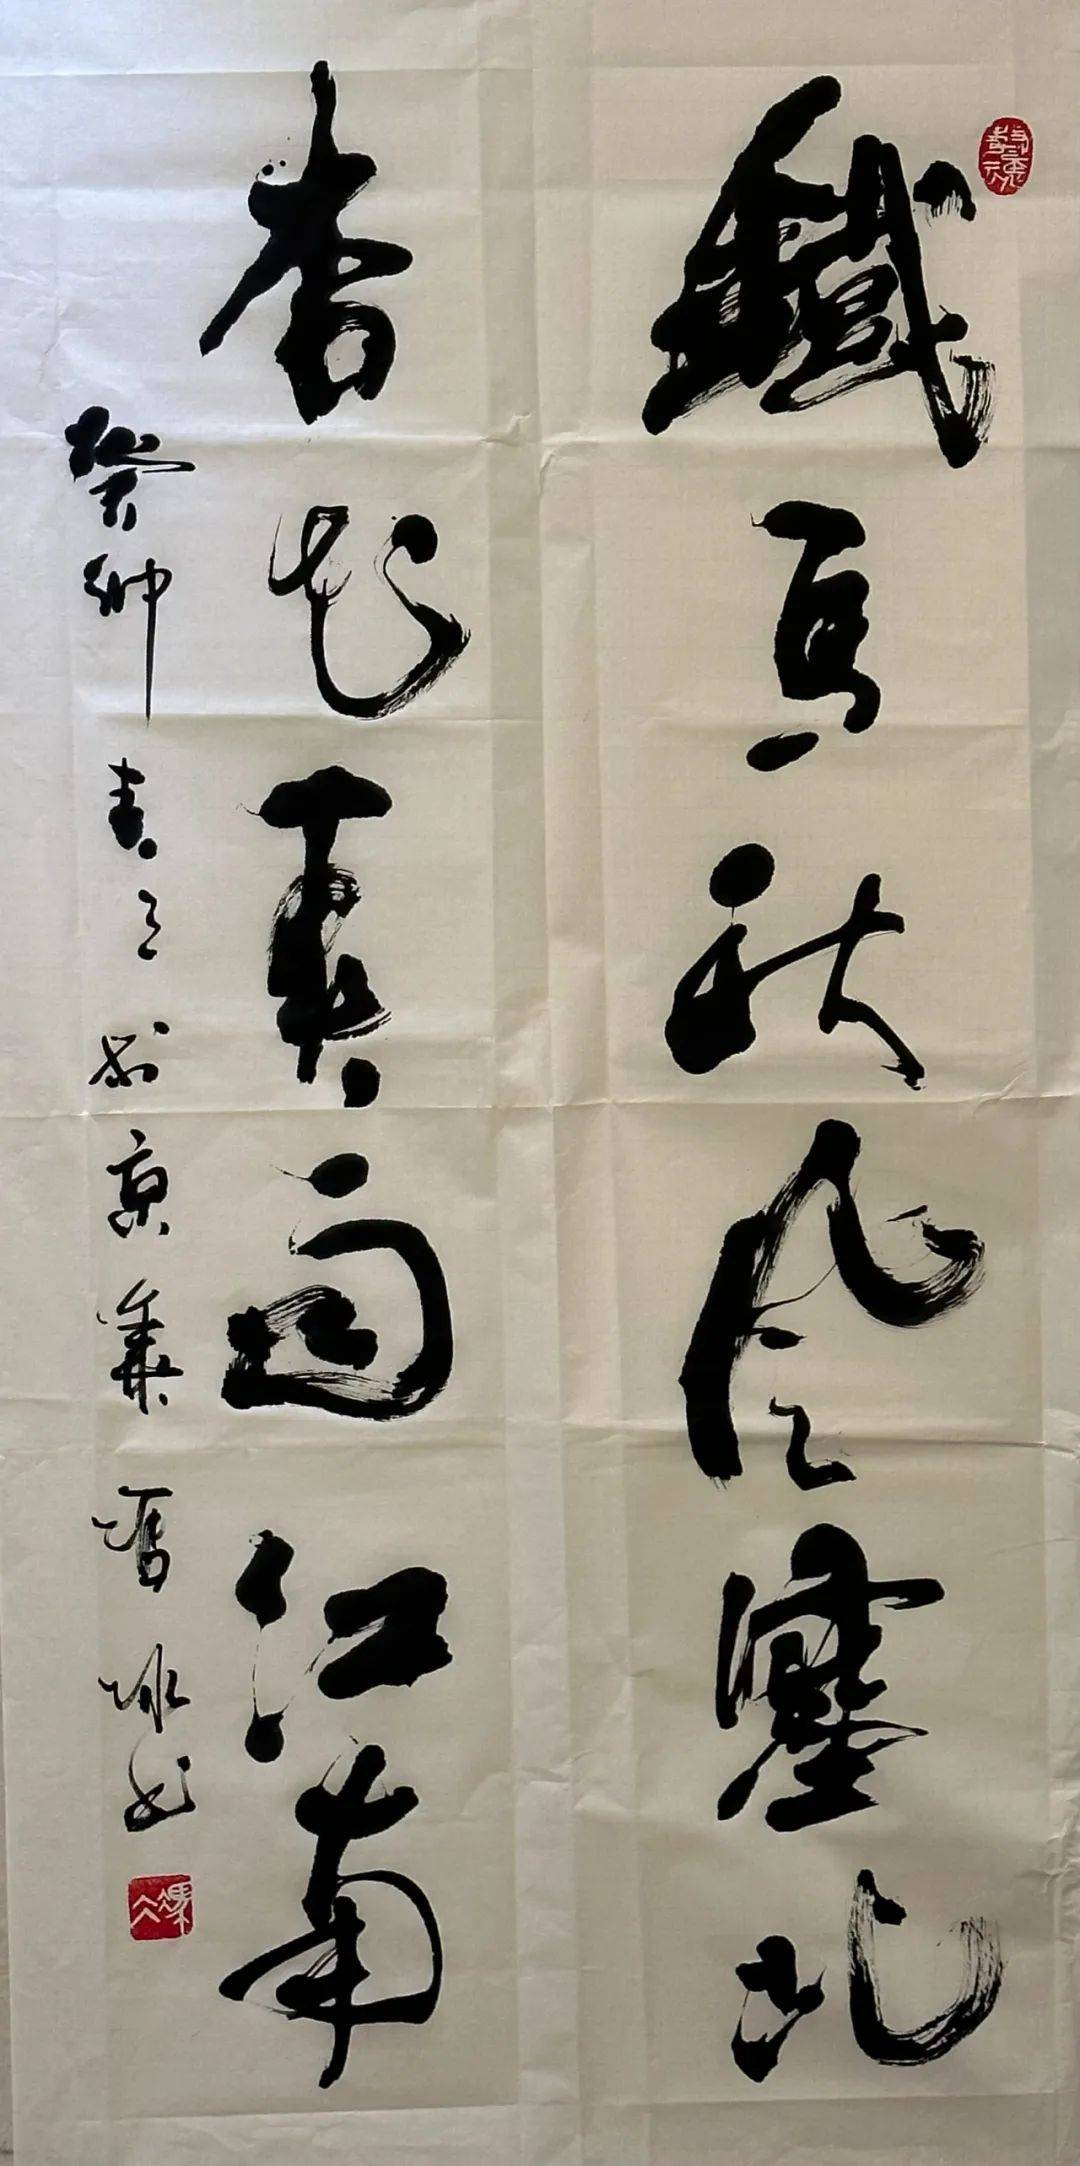 鐵馬秋風塞北
杏花春雨江南
癸卯春 於京華